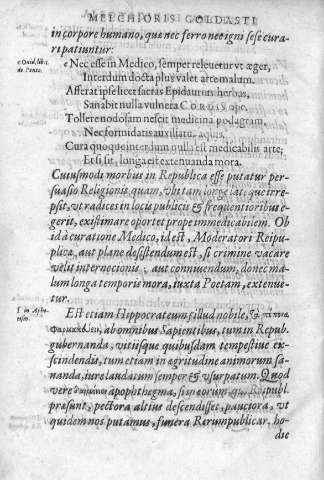 MELCHIORIS GOLDASTI
in corpore humano, quæ nec ferro nec igni sese cura-
ri patiuntur:
e Ouid. lib. 1.
de Ponto.
e Nec esse in Medico, semper releuetur vt æger,
Interdum docta plus valet arte malum.
Afferat ipse licet sacras Epidaurius herbas,
Sanabit nulla vulnera CORDIS ope.
Tollere nodosam nescit medicina podagram,
Nec formidatis auxiliatur aquis.
Cura quoque interdum nulla est medicabilis arte,
Et si sit, longa est extenuanda mora.
Cuiusmodi morbus in Republica esse putatur per-
suasio Religionis quam, vbi tam longe late que irre-
psit, vt radices in locis publicis & frequentioribus e-
gerit, existimare oportet prope immedicabilem. Ob
id à curatione Medico, id est, Moderatori Reipu-
plicæ, aut plane desistendum est, si crimine vacare
velit internecionis; aut conniuendum, donec ma-
lum longa temporis mora, iuxta Poetam, extenue-
tur.
f. in Apho-
Est etiam Hippocrateum f illud nobile, &
ab omnibus Sapientibus, tum in Repub.
gubernanda, vitiisque quibusdam tempestiue ex-
scindendis, tum etiam in ægritudine animorum sa-
nanda, iure laudatum semper & vsurpatum. Quod
vere apophthegma, si in eorum qui Reipubl.
præsunt, pectora altius descendisset, pauciora, vt
quidem nos putamus, funera Rerumpublicar. ho-
die